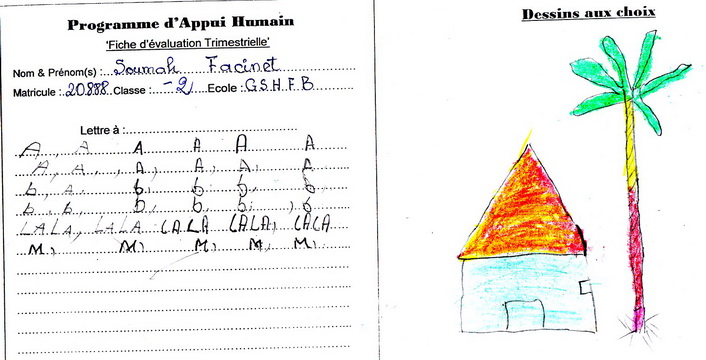 Programme d'Appui Humain
'Fiche d'évaluation Trimestrielle'
Nom & Prénom(s) : Soumah Facinet
Matricule : 20888 Classe : -2 Ecole : G S H F B
Lettre à :
A, A A A A A
A, A, A, A, A, A
b, A, b, b, b, b
b, b, b, b, b, b
LALA, LALA LALA LALA, LALA
M, M, M, M, M,
Dessins aux choix